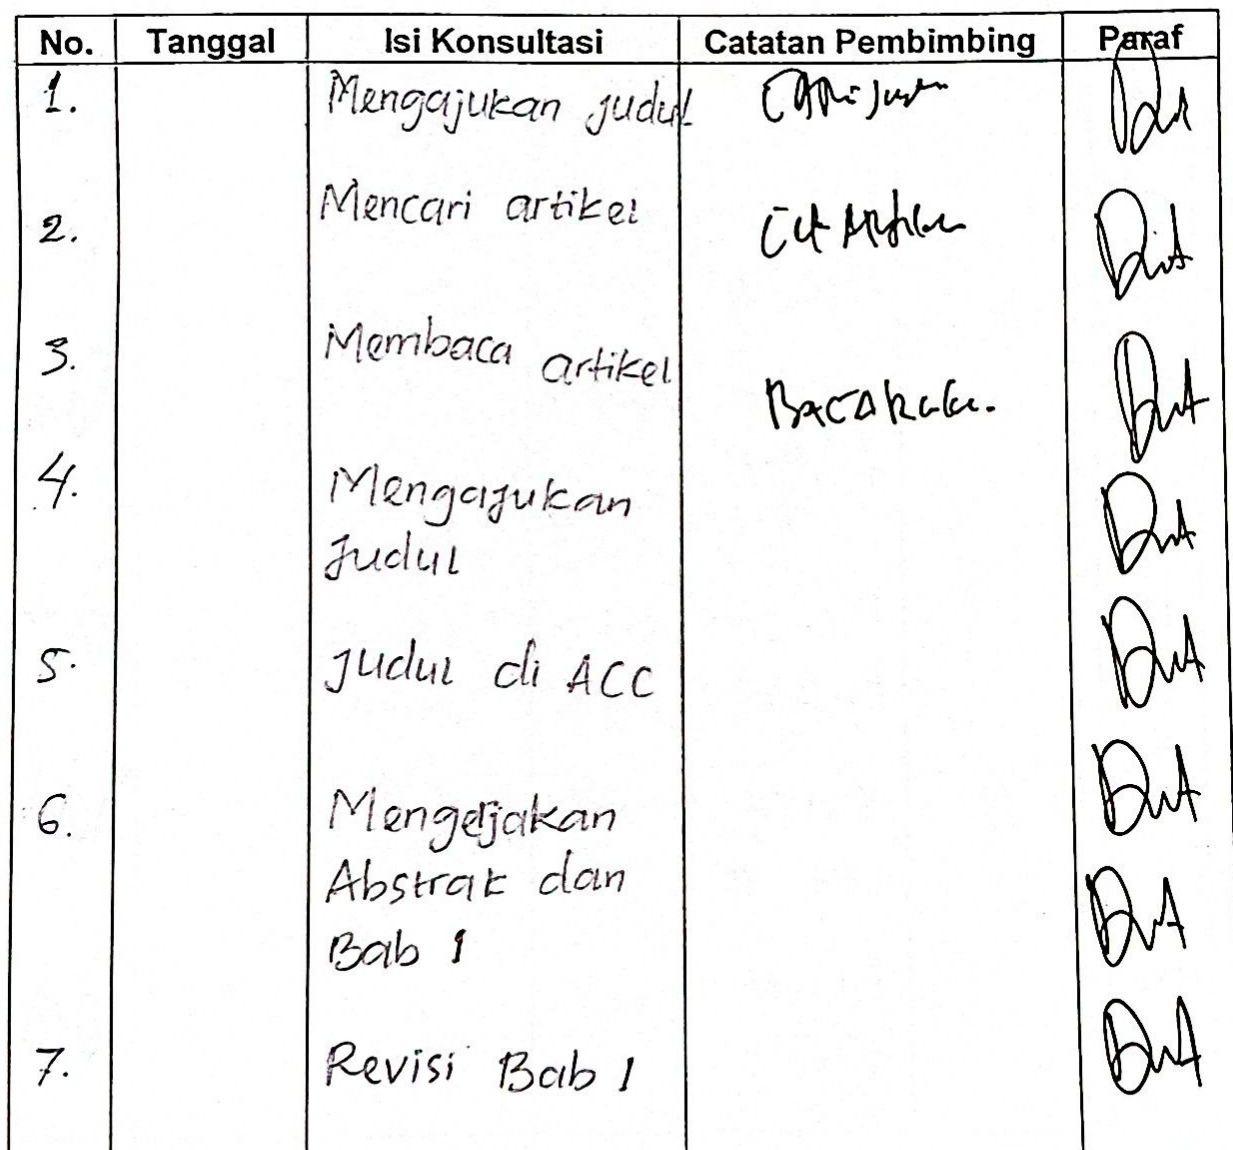 No. Tanggal Isi Konsultasi Catatan Pembimbing Paraf
1. Mengajukan judul
2. Mencari artikel
3. Membaca artikel
4. Mengajukan
Judul
5. Judul di ACC
6. Mengerjakan
Abstrak dan
Bab 1
7. Revisi Bab 1